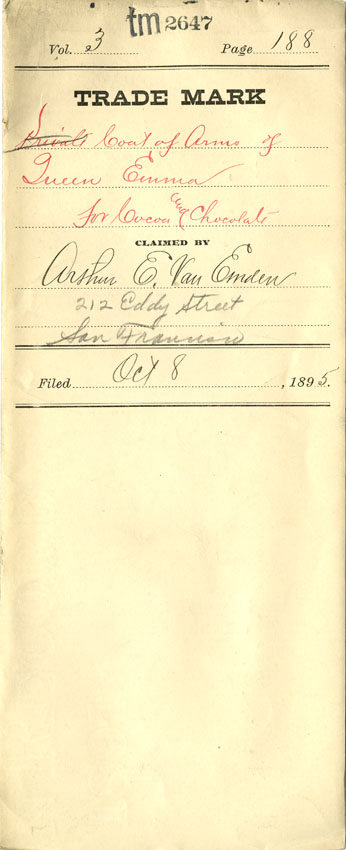 tm 2647
Vol. 3 Page 188
TRADE MARK
Private Coat of Arms of
Queen Emma
for Cocoa and Chocolate
CLAIMED BY
Arthur E. Van Emden
212 Eddy Street
San Francisco
Filed Oct 8, 1895.